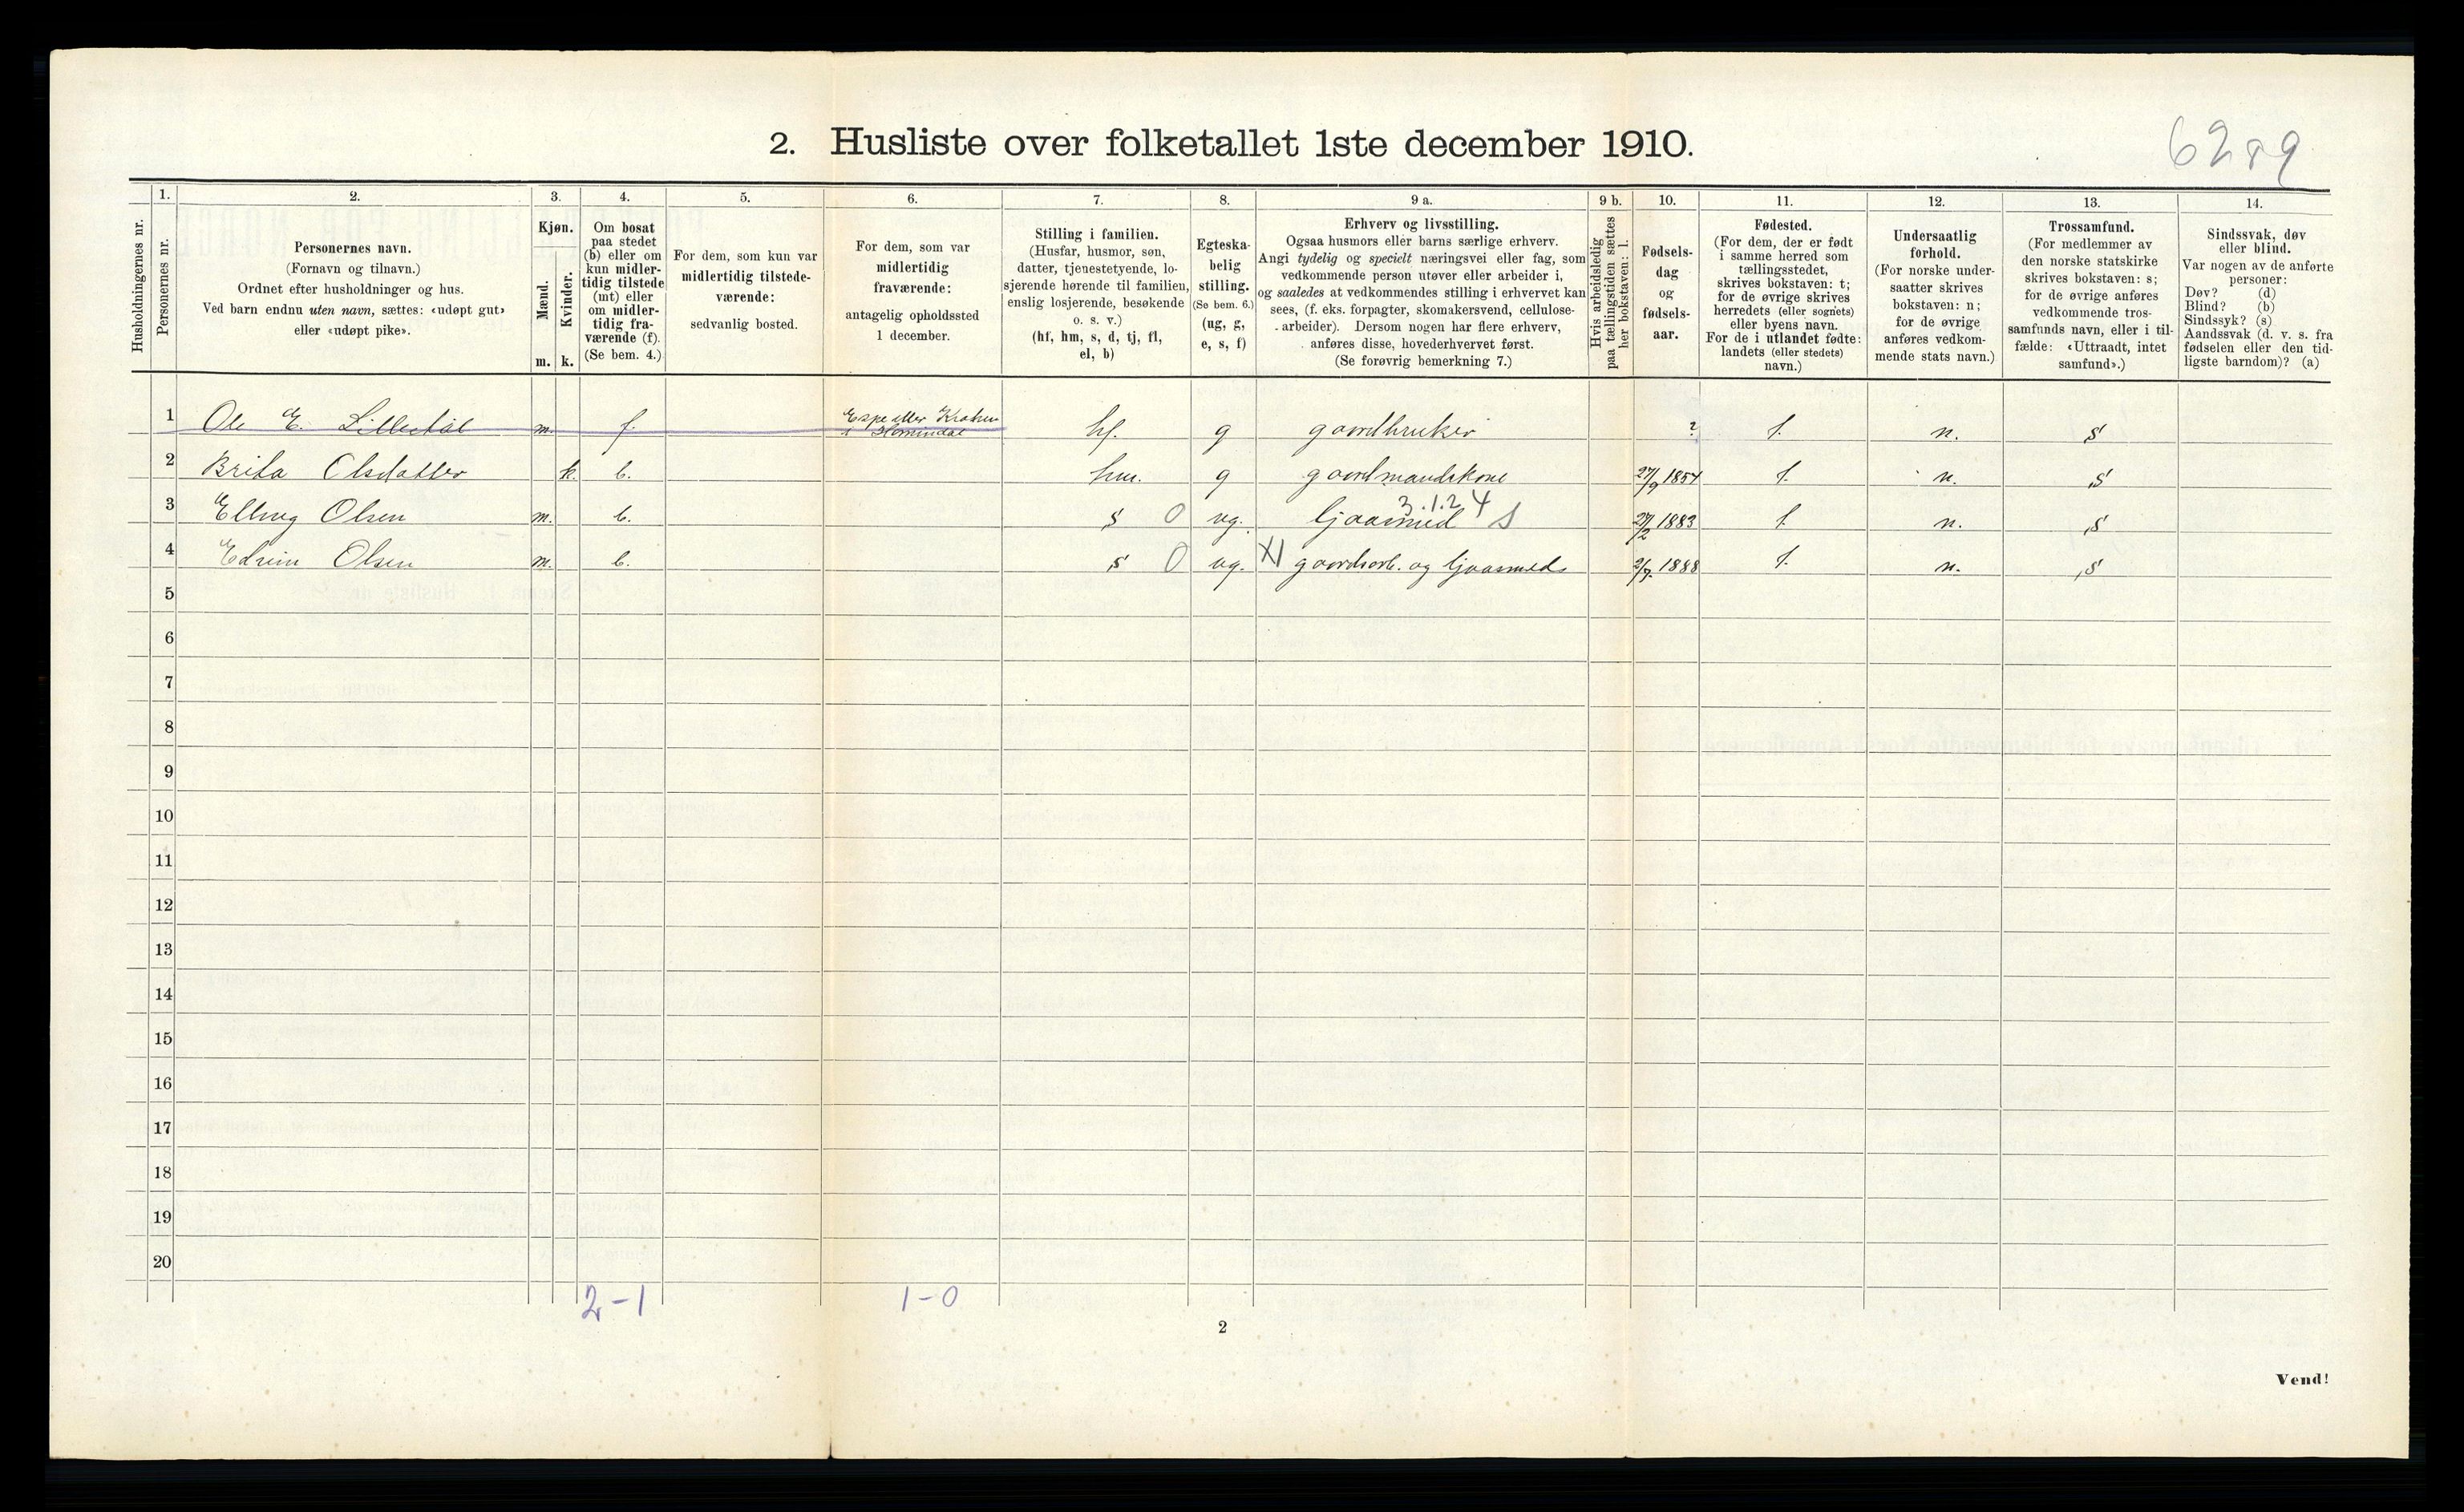 2. Husliste over folketallet 1ste december 1910.
6289
Husholdningernes nr.
1.
Personernes nr.
2.
Personernes navn.
(Fornavn og tilnavn.)
Ordnet efter husholdninger og hus.
Ved barn endnu uten navn, sættes: «udøpt gut»
eller «udøpt pike».
3.
Kjøn.
Mænd.
m.
Kvinder.
k.
4.
Om bosat
paa stedet
(b) eller om
kun midler-
tidig tilstede
(mt) eller
om midler-
tidig fra-
værende (f).
(Se bem. 4.)
5.
For dem, som kun var
midlertidig tilstede-
værende:
sedvanlig bosted.
6.
For dem, som var
midlertidig
fraværende:
antagelig opholdssted
1 december.
7.
Stilling i familien.
(Husfar, husmor, søn,
datter, tjenestetyende, lo-
sjerende hørende til familien,
enslig losjerende, besøkende
o. s. v.)
(hf, hm, s, d, tj, fl,
el, b)
8.
Egteska-
belig
stilling.
(Se bem. 6.)
(ug, g,
e, s, f)
9 a.
Erhverv og livsstilling.
Ogsaa husmors eller barns særlige erhverv.
Angi tydelig og specielt næringsvei eller fag, som
vedkommende person utøver eller arbeider i,
og saaledes at vedkommendes stilling i erhvervet kan
sees, (f. eks. forpagter, skomakersvend, cellulose-
arbeider). Dersom nogen har flere erhverv,
anføres disse, hovederhvervet først.
(Se forøvrig bemerkning 7.)
9 b.
Hvis arbeidsledig
paa tællingstiden sættes
her bokstaven: l.
10.
Fødsels-
dag
og
fødsels-
aar.
11.
Fødested.
(For dem, der er født
i samme herred som
tællingsstedet,
skrives bokstaven: t;
for de øvrige skrives
herredets (eller sognets)
eller byens navn.
For de i utlandet fødte:
landets (eller stedets)
navn.)
12.
Undersaatlig
forhold.
(For norske under-
saatter skrives
bokstaven: n;
for de øvrige
anføres vedkom-
mende stats navn.)
13.
Trossamfund.
(For medlemmer av
den norske statskirke
skrives bokstaven: s;
for de øvrige anføres
vedkommende tros-
samfunds navn, eller i til-
fælde: «Uttraadt, intet
samfund».)
14.
Sindssvak, døv
eller blind.
Var nogen av de anførte
personer:
Døv? (d)
Blind? (b)
Sindssyk? (s)
Aandssvak (d. v. s. fra
fødselen eller den tid-
ligste barndom)? (a)
1 Ole E. Lillestøl m. f. Espe eller Kraken i Hornindal hf. g gaardbruker ? t. n. s
2 Brita Olsdatter k. b. hm. g gaardmandskone 27/9 1854 t. n. s
3.1.2 4
3 Elling Olsen m. b. s 0 ug. Gjaasmed S 27/2 1883 t. n. s
4 Edvin Olsen m. b. s 0 ug. XI gaardsarb. og Gjaasmed 2/7. 1888 t. n. s
5
6
7
8
9
10
11
12
13
14
15
16
17
18
19
20
2-1 1-0
2
Vend!